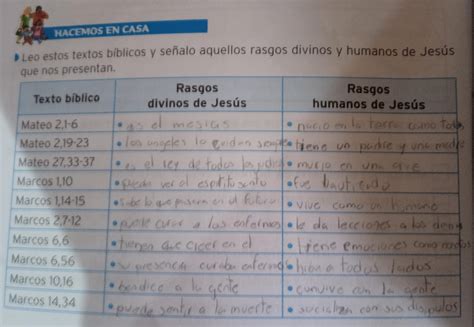 HACEMOS EN CASA
Leo estos textos bíblicos y señalo aquellos rasgos divinos y humanos de Jesús
que nos presentan.
Texto bíblico
Rasgos
divinos de Jesús
Rasgos
humanos de Jesús
Mateo 2,1-6 • es el mesias • nacio en la tierra como todos
Mateo 2,19-23 • los angeles lo cuidan siempre • tiene un padre y una madre
Mateo 27,33-37 • es el rey de todos los judios • murio en una
Marcos 1,10 • puede ver al espiritu santo • fue bautizado
Marcos 1,14-15 • sabe lo que pasara en el futuro • vive como un humano
Marcos 2,7-12 • puede curar a los enfermos • le da lecciones a los
Marcos 6,6 • tienen que creer en el • tiene emociones como
Marcos 6,56 • su presencia curaba enfermos • hiba a todos lados
Marcos 10,16 • bendice a la gente • cunvive con la gente
Marcos 14,34 • puede sentir a la muerte • socializa con sus disipulos